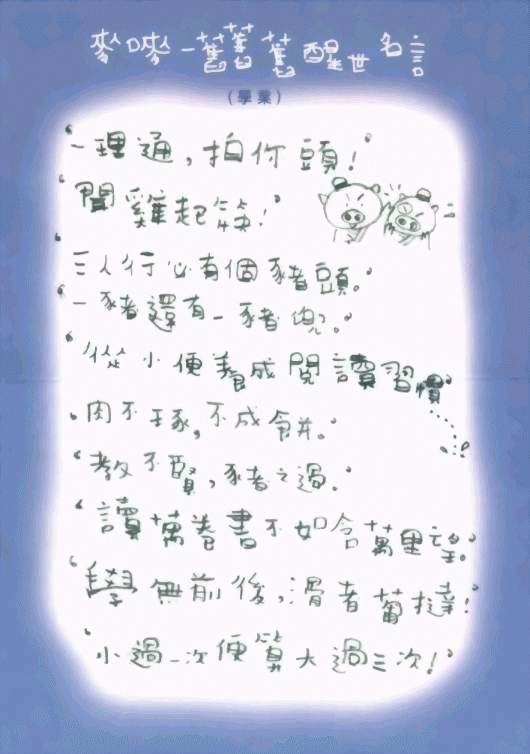 麥嘜一舊舊舊醒世名言
(學業)
“一理通,拍你頭!”
“聞雞起缽!”
“三人行必有個豬頭。”
“一豬還有一豬兜。”
“從小便養成閱讀習慣”
“肉不琢,不成餅。”
“教不賢,豬之過。”
“讀萬卷書不如含萬里望。”
“學無前後,滑者蔔撻!”
“小過一次便算大過三次!”